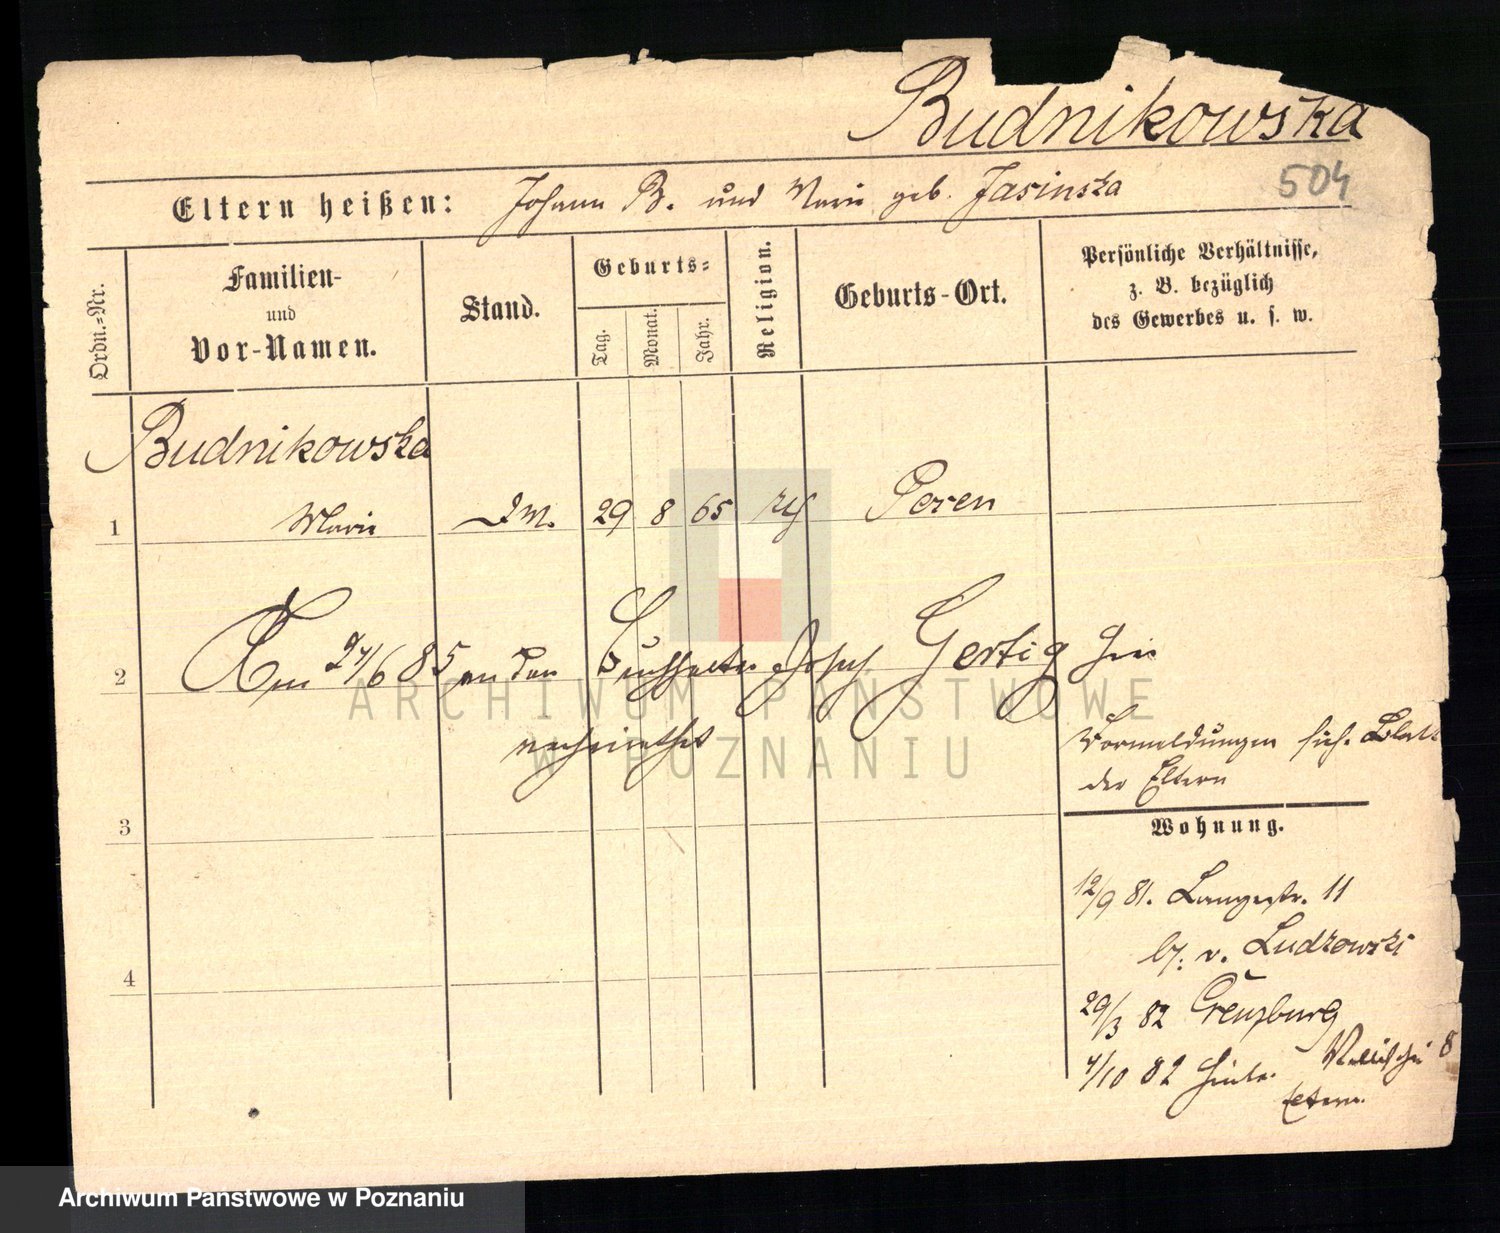 Budnikowska
504
Eltern heißen: Johann B. und Marie geb. Jasinska
Ordn.-Nr.
Familien-
und
Vor-Namen.
Stand.
Geburts-
Tag.
Monat.
Jahr.
Religion.
Geburts-Ort.
Persönliche Verhältnisse,
z. B. bezüglich
des Gewerbes u. s. w.
Budnikowska
1 Marie 29 8 65 Posen
2 Am 24/6 85 an den Buchhalter Josef Gertig hier
verheirathet
Vormeldungen sieh. Blatt
der Eltern
3
Wohnung.
12/9 81. Langestr. 11
b. v. Ludzowski
4
29/3 82 Creuzburg
4/10 82 8
Eltern.
ARCHIWUM PAŃSTWOWE
W POZNANIU
Archiwum Państwowe w Poznaniu